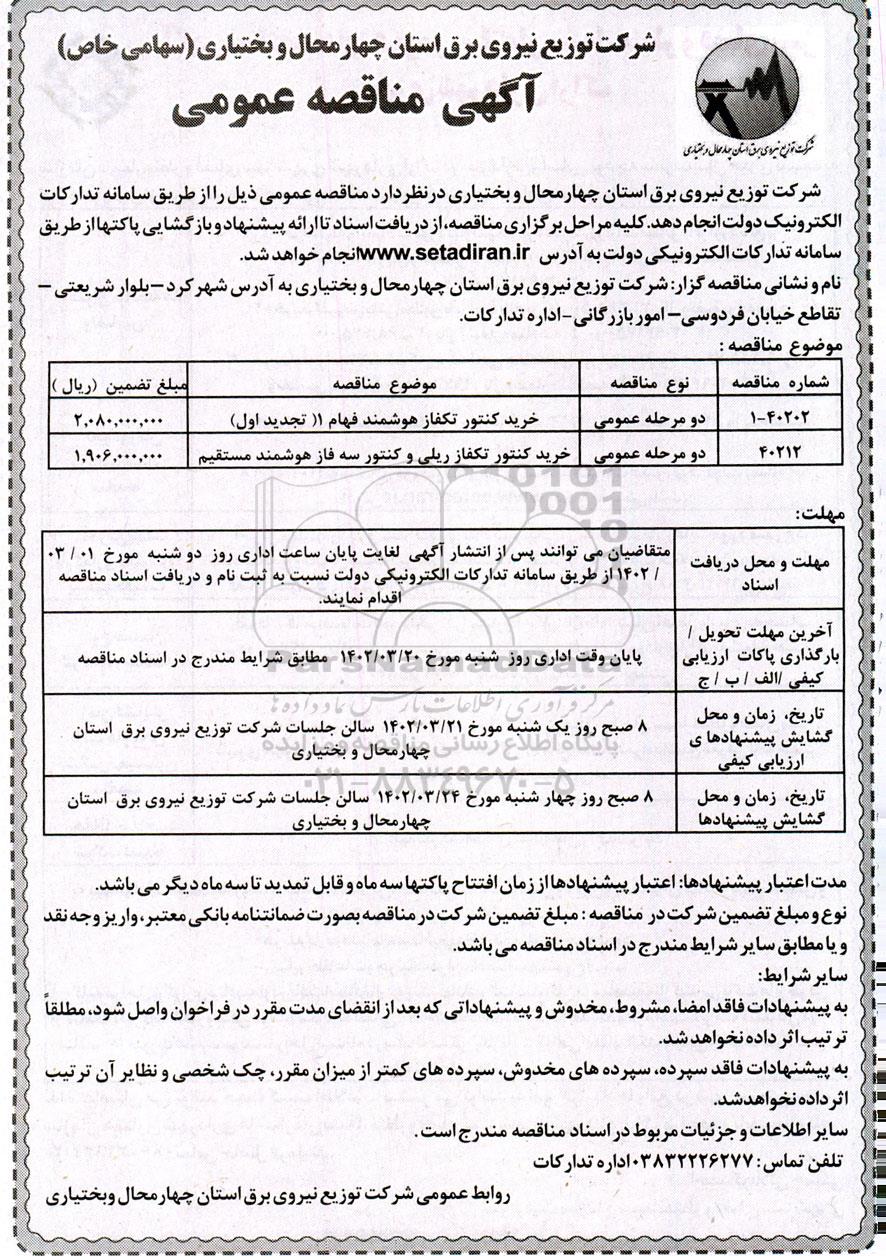 شرکت توزیع نیروی برق استان چهارمحال و بختیاری (سهامی خاص)
آگهی مناقصه عمومی
شرکت توزیع نیروی برق استان چهارمحال و بختیاری
شرکت توزیع نیروی برق استان چهارمحال و بختیاری در نظر دارد مناقصه عمومی ذیل را از طریق سامانه تدارکات
الکترونیک دولت انجام دهد. کلیه مراحل برگزاری مناقصه، از دریافت اسناد تا ارائه پیشنهاد و بازگشایی پاکتها از طریق
سامانه تدارکات الکترونیکی دولت به آدرس www.setadiran.ir انجام خواهد شد.
نام و نشانی مناقصه گزار: شرکت توزیع نیروی برق استان چهارمحال و بختیاری به آدرس شهرکرد – بلوار شریعتی –
تقاطع خیابان فردوسی – امور بازرگانی - اداره تدارکات.
موضوع مناقصه :
شماره مناقصه نوع مناقصه موضوع مناقصه مبلغ تضمین (ریال)
۱-۴۰۲۰۲ دو مرحله عمومی خرید کنتور تکفاز هوشمند فهام ۱( تجدید اول) ۲,۰۸۰,۰۰۰,۰۰۰
۴۰۲۱۲ دو مرحله عمومی خرید کنتور تکفاز ریلی و کنتور سه فاز هوشمند مستقیم ۱,۹۰۶,۰۰۰,۰۰۰
مهلت:
مهلت و محل دریافت
اسناد
متقاضیان می توانند پس از انتشار آگهی لغایت پایان ساعت اداری روز دو شنبه مورخ ۰۱ / ۰۳
/ ۱۴۰۲ از طریق سامانه تدارکات الکترونیکی دولت نسبت به ثبت نام و دریافت اسناد مناقصه
اقدام نمایند.
آخرین مهلت تحویل /
بارگذاری پاکات ارزیابی
کیفی /الف / ب / ج
پایان وقت اداری روز شنبه مورخ ۱۴۰۲/۰۳/۲۰ مطابق شرایط مندرج در اسناد مناقصه
تاریخ، زمان و محل
گشایش پیشنهادها ی
ارزیابی کیفی
۸ صبح روز یک شنبه مورخ ۱۴۰۲/۰۳/۲۱ سالن جلسات شرکت توزیع نیروی برق استان
چهارمحال و بختیاری
تاریخ، زمان و محل
گشایش پیشنهادها
۸ صبح روز چهار شنبه مورخ ۱۴۰۲/۰۳/۲۴ سالن جلسات شرکت توزیع نیروی برق استان
چهارمحال و بختیاری
ParsNamadData
مرکز فرآوری اطلاعات پارس نماد داده ها
پایگاه اطلاع رسانی مناقصه و مزایده
۰۲۱-۸۸۳۴۹۶۷۰-۵
مدت اعتبار پیشنهادها: اعتبار پیشنهادها از زمان افتتاح پاکتها سه ماه و قابل تمدید تا سه ماه دیگر می باشد.
نوع و مبلغ تضمین شرکت در مناقصه : مبلغ تضمین شرکت در مناقصه بصورت ضمانتنامه بانکی معتبر، واریز وجه نقد
و یا مطابق سایر شرایط مندرج در اسناد مناقصه می باشد.
سایر شرایط:
به پیشنهادات فاقد امضا، مشروط، مخدوش و پیشنهاداتی که بعد از انقضای مدت مقرر در فراخوان واصل شود، مطلقاً
ترتیب اثر داده نخواهد شد.
به پیشنهادات فاقد سپرده، سپرده های مخدوش، سپرده های کمتر از میزان مقرر، چک شخصی و نظایر آن ترتیب
اثر داده نخواهد شد.
سایر اطلاعات و جزئیات مربوط در اسناد مناقصه مندرج است .
تلفن تماس : ۰۳۸۳۲۲۲۶۲۷۷ اداره تدارکات
روابط عمومی شرکت توزیع نیروی برق استان چهارمحال وبختیاری